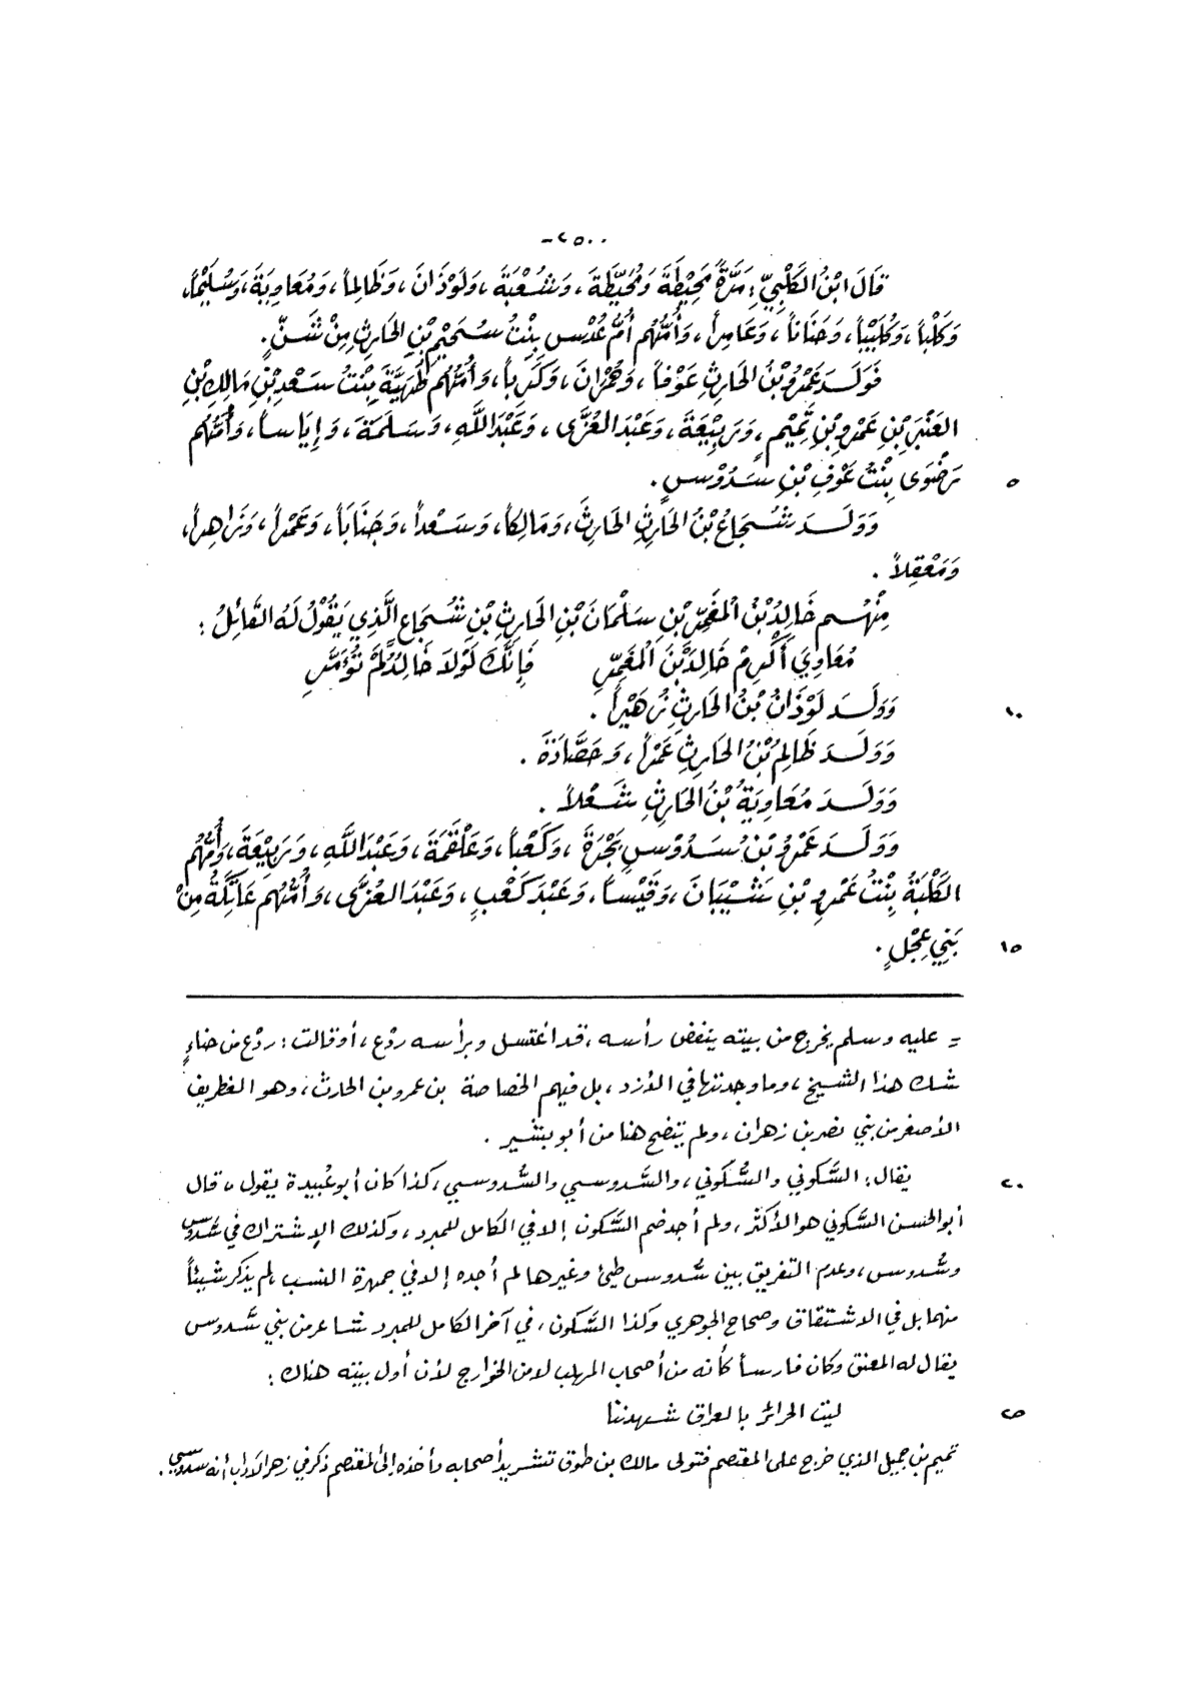 -٢٥٠٠-
قَالَ ابْنُ الكَلْبِيِّ: مَرَّةً مَحِيْطَةَ وَمُحَيَّطَةَ، وَشُعْبَةَ، وَلَوْذَانَ، وَظَالِماً، وَمُعَاوِيَةَ، وَسُلَيْماً،
وَكَلْباً، وَكُلَيْباً، وَحَنَاناً، وَعَامِراً، وَأُمُّهُم أُمُّ عُدُسٍ بِنْتُ سُحَيْمِ بْنِ الحَارِثِ مِنْ شَنٍّ.
فَوَلَدَ عَمْرُو بْنُ الحَارِثِ عَوْفاً، وَحُمْرَانَ، وَكَرِباً، وَأُمُّهُم ظُهَيَّةَ بِنْتُ سَعْدِ بْنِ مَالِكِ بْنِ
العَنْبَرِ بْنِ عَمْرِو بْنِ تَمِيْمٍ، وَرَبِيْعَةَ، وَعَبْدَ العُزَّى، وَعَبْدَ اللَّهِ، وَسَلَمَةَ، وَإِيَاساً، وَأُمُّهُم
رَضْوَى بِنْتُ عَوْفِ بْنِ سَدُوْسٍ. ٥
وَوَلَدَ شُجَاعُ بْنُ الحَارِثِ الحَارِثَ، وَمَالِكاً، وَسَعْداً، وَجَنَاباً، وَعَمْراً، وَزَاهِراً،
وَمَعْقِلاً.
مِنْهُم خَالِدُ بْنُ المُعَمَّرِ بْنِ سَلْمَانَ بْنِ الحَارِثِ بْنِ شُجَاعٍ الَّذِي يَقُوْلُ لَهُ القَائِلُ:
مُعَاوِيَ أَكْرِمْ خَالِدَ بْنَ المُعَمَّرِ فَإِنَّكَ لَوْلاَ خَالِدٌ لَمْ تُؤَمَّرِ
وَوَلَدَ لَوْذَانُ بْنُ الحَارِثِ زُهَيْراً. ١٠
وَوَلَدَ ظَالِمُ بْنُ الحَارِثِ عَمْراً، وَحَصَّادَةَ.
وَوَلَدَ مُعَاوِيَةُ بْنُ الحَارِثِ شَعْلاً.
وَوَلَدَ عَمْرُو بْنُ سَدُوْسٍ بَجْرَةَ، وَكَعْباً، وَعَلْقَمَةَ، وَعَبْدَ اللَّهِ، وَرَبِيْعَةَ، وَأُمُّهُم
الكَلْبَةُ بِنْتُ عَمْرِو بْنِ شَيْبَانَ، وَقَيْساً، وَعَبْدَ كَعْبٍ، وَعَبْدَ العُزَّى، وَأُمُّهُم عَاتِكَةُ مِنْ
بَنِي عِجْلٍ. ١٥
= عليه وسلم يخرج من بيته ينفض رأسه، قد اغتسل وبرأسه ردْع، أو قالت: ردْع من حناءٍ
شك هذا الشيخ، وما وجدتها في الأزد، بل فيهم الخصاصة بن عمرو بن الحارث، وهو الغطريف
الأصغر من بني نصر بن زهران، ولم يتضح هنا من أبو بشير.
يقال: السَّكوني والسُّكوني، والسَّدوسي والسُّدوسي، كذا كان أبو عُبيدة يقول، قال ٢٠
أبو الحسن السَّكوني هو الأكثر، ولم أجد ضم السَّكون إلا في الكامل للمبرد، وكذلك الإشتراك في سَدوس
وسُدوس، وعدم التفريق بين سُدوس طيئ وغيرها لم أجده إلا في جمهرة النسب، لم يذكر شيئاً
منهما بل في الاشتقاق وصحاح الجوهري وكذا السَّكون، في آخر الكامل للمبرد شاعر من بني سَدوس
يقال له المعنق وكان فارساً كأنه من أصحاب المهلب لا من الخوارج لأن أول بيته هناك:
ليت الحرائر بالعراق شهدننا ٢٥
تميم بن جميل الذي خرج على المعتصم فتولى مالك بن طوق تشريد أصحابه وأخذه إلى المعتصم ذكر في زهر الآداب أنه سدوسي.